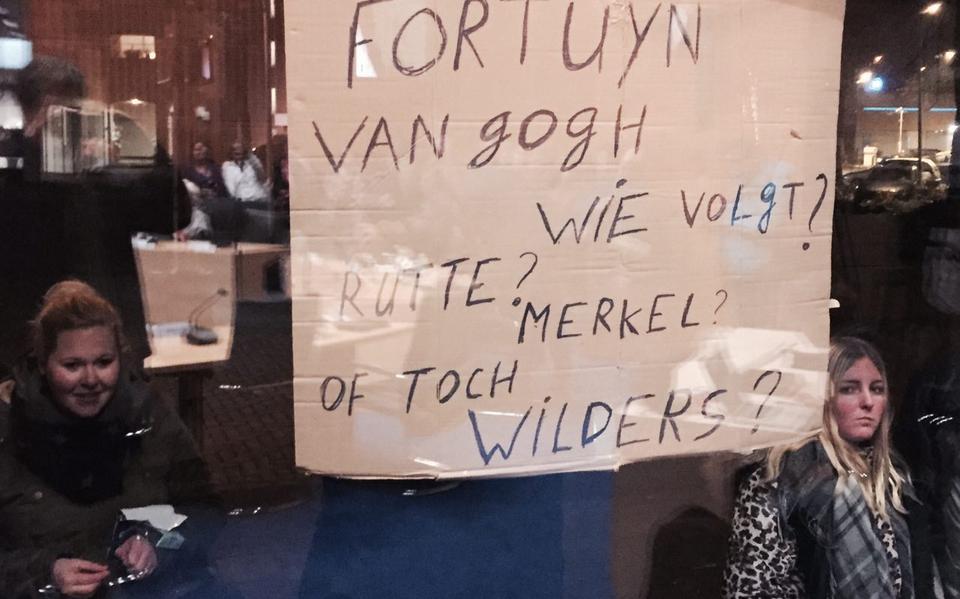 FORTUYN
VAN gOgH
WIE VOLgT?
RUTTE?
MERKEL?
OF TOCH
WILDERS?